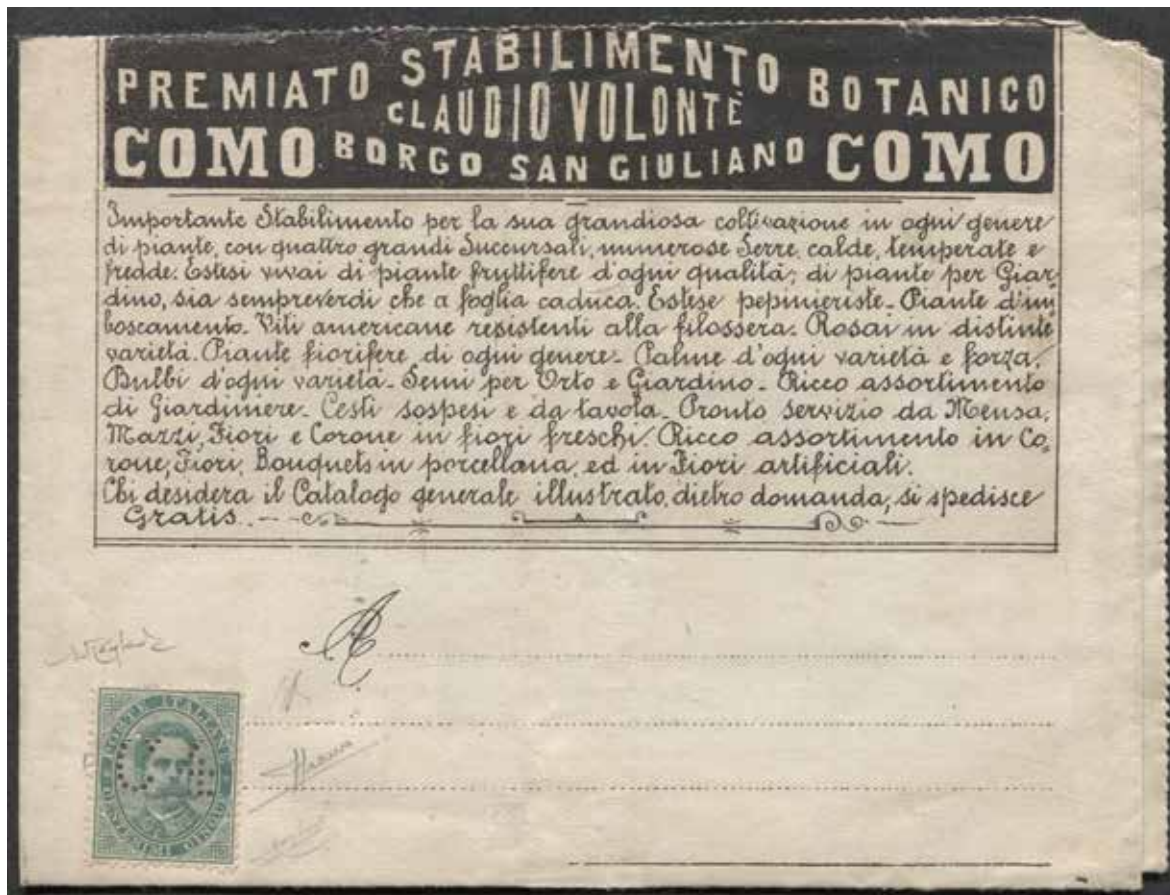 PREMIATO STABILIMENTO BOTANICO
CLAUDIO VOLONTÈ
COMO BORGO SAN GIULIANO COMO
Importante Stabilimento per la sua grandiosa coltivazione in ogni genere
di piante, con quattro grandi Succursali, numerose Serre calde, temperate e
fredde. Estesi vivai di piante fruttifere d'ogni qualità; di piante per Giar-
dino, sia sempreverdi che a foglia caduca. Estese pepinieriste. Piante d'im
boscamento. Viti americane resistenti alla filossera. Rosai in distinte
varietà. Piante fiorifere di ogni genere. Palme d'ogni varietà e forza.
Bulbi d'ogni varietà. Semi per Orto e Giardino. Ricco assortimento
di Giardiniere. Cesti sospesi e da tavola. Pronto servizio da Mensa,
Mazzi, Fiori e Corone in fiori freschi. Ricco assortimento in Co-
rone, Fiori, Bouquets in porcellana, ed in Fiori artificiali.
Chi desidera il Catalogo generale illustrato, dietro domanda, si spedisce
Gratis.
A
POSTE ITALIANE
CINQUE CENTESIMI